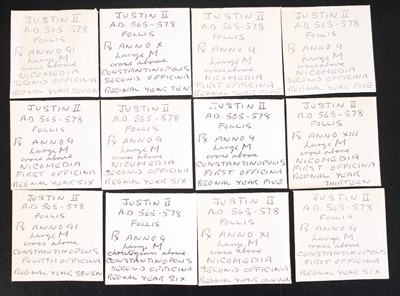 JUSTIN II
A.D. 565-578
FOLLIS
℞ ANNO GI
Large M
cross above
NICOMEDIA
SECOND OFFICINA
REGNAL YEAR SEVEN
JUSTIN II
A.D. 565-578
FOLLIS
℞ ANNO X
Large M
cross above
CONSTANTINOPOLIS
SECOND OFFICINA
REGNAL YEAR TEN
JUSTIN II
A.D. 565-578
FOLLIS
℞ ANNO Ч
Large M
cross above
NICOMEDIA
FIRST OFFICINA
REGNAL YEAR FIVE
JUSTIN II
A.D. 565-578
FOLLIS
℞ ANNO Ч
Large M
cross above
NICOMEDIA
SECOND OFFICINA
REGNAL YEAR FIVE
JUSTIN II
A.D. 565-578
FOLLIS
℞ ANNO G
Large M
cross above
NICOMEDIA
FIRST OFFICINA
REGNAL YEAR SIX
JUSTIN II
A.D. 565-578
FOLLIS
℞ ANNO G
Large M
cross above
NICOMEDIA
SECOND OFFICINA
REGNAL YEAR SIX
JUSTIN II
A.D. 565-578
FOLLIS
℞ ANNO Ч
Large M
cross above
CONSTANTINOPOLIS
FIRST OFFICINA
REGNAL YEAR FIVE
JUSTIN II
A.D. 565-578
FOLLIS
℞ ANNO XIII
Large M
cross above
NICOMEDIA
FIRST OFFICINA
REGNAL YEAR
THIRTEEN
JUSTIN II
A.D. 565-578
FOLLIS
℞ ANNO GI
Large M
cross above
CONSTANTINOPOLIS
FOURTH OFFICINA
REGNAL YEAR SEVEN
JUSTIN II
A.D. 565-578
FOLLIS
℞ ANNO G
Large M
christogram above
CONSTANTINOPOLIS
SECOND OFFICINA
REGNAL YEAR SIX
JUSTIN II
A.D. 565-578
FOLLIS
℞ ANNO XI
Large M
cross above
NICOMEDIA
SECOND OFFICINA
REGNAL YEAR
JUSTIN II
A.D. 565-578
FOLLIS
℞ ANNO G
Large M
cross above
CONSTANTINOPOLIS
FIRST OFFICINA
REGNAL YEAR SIX